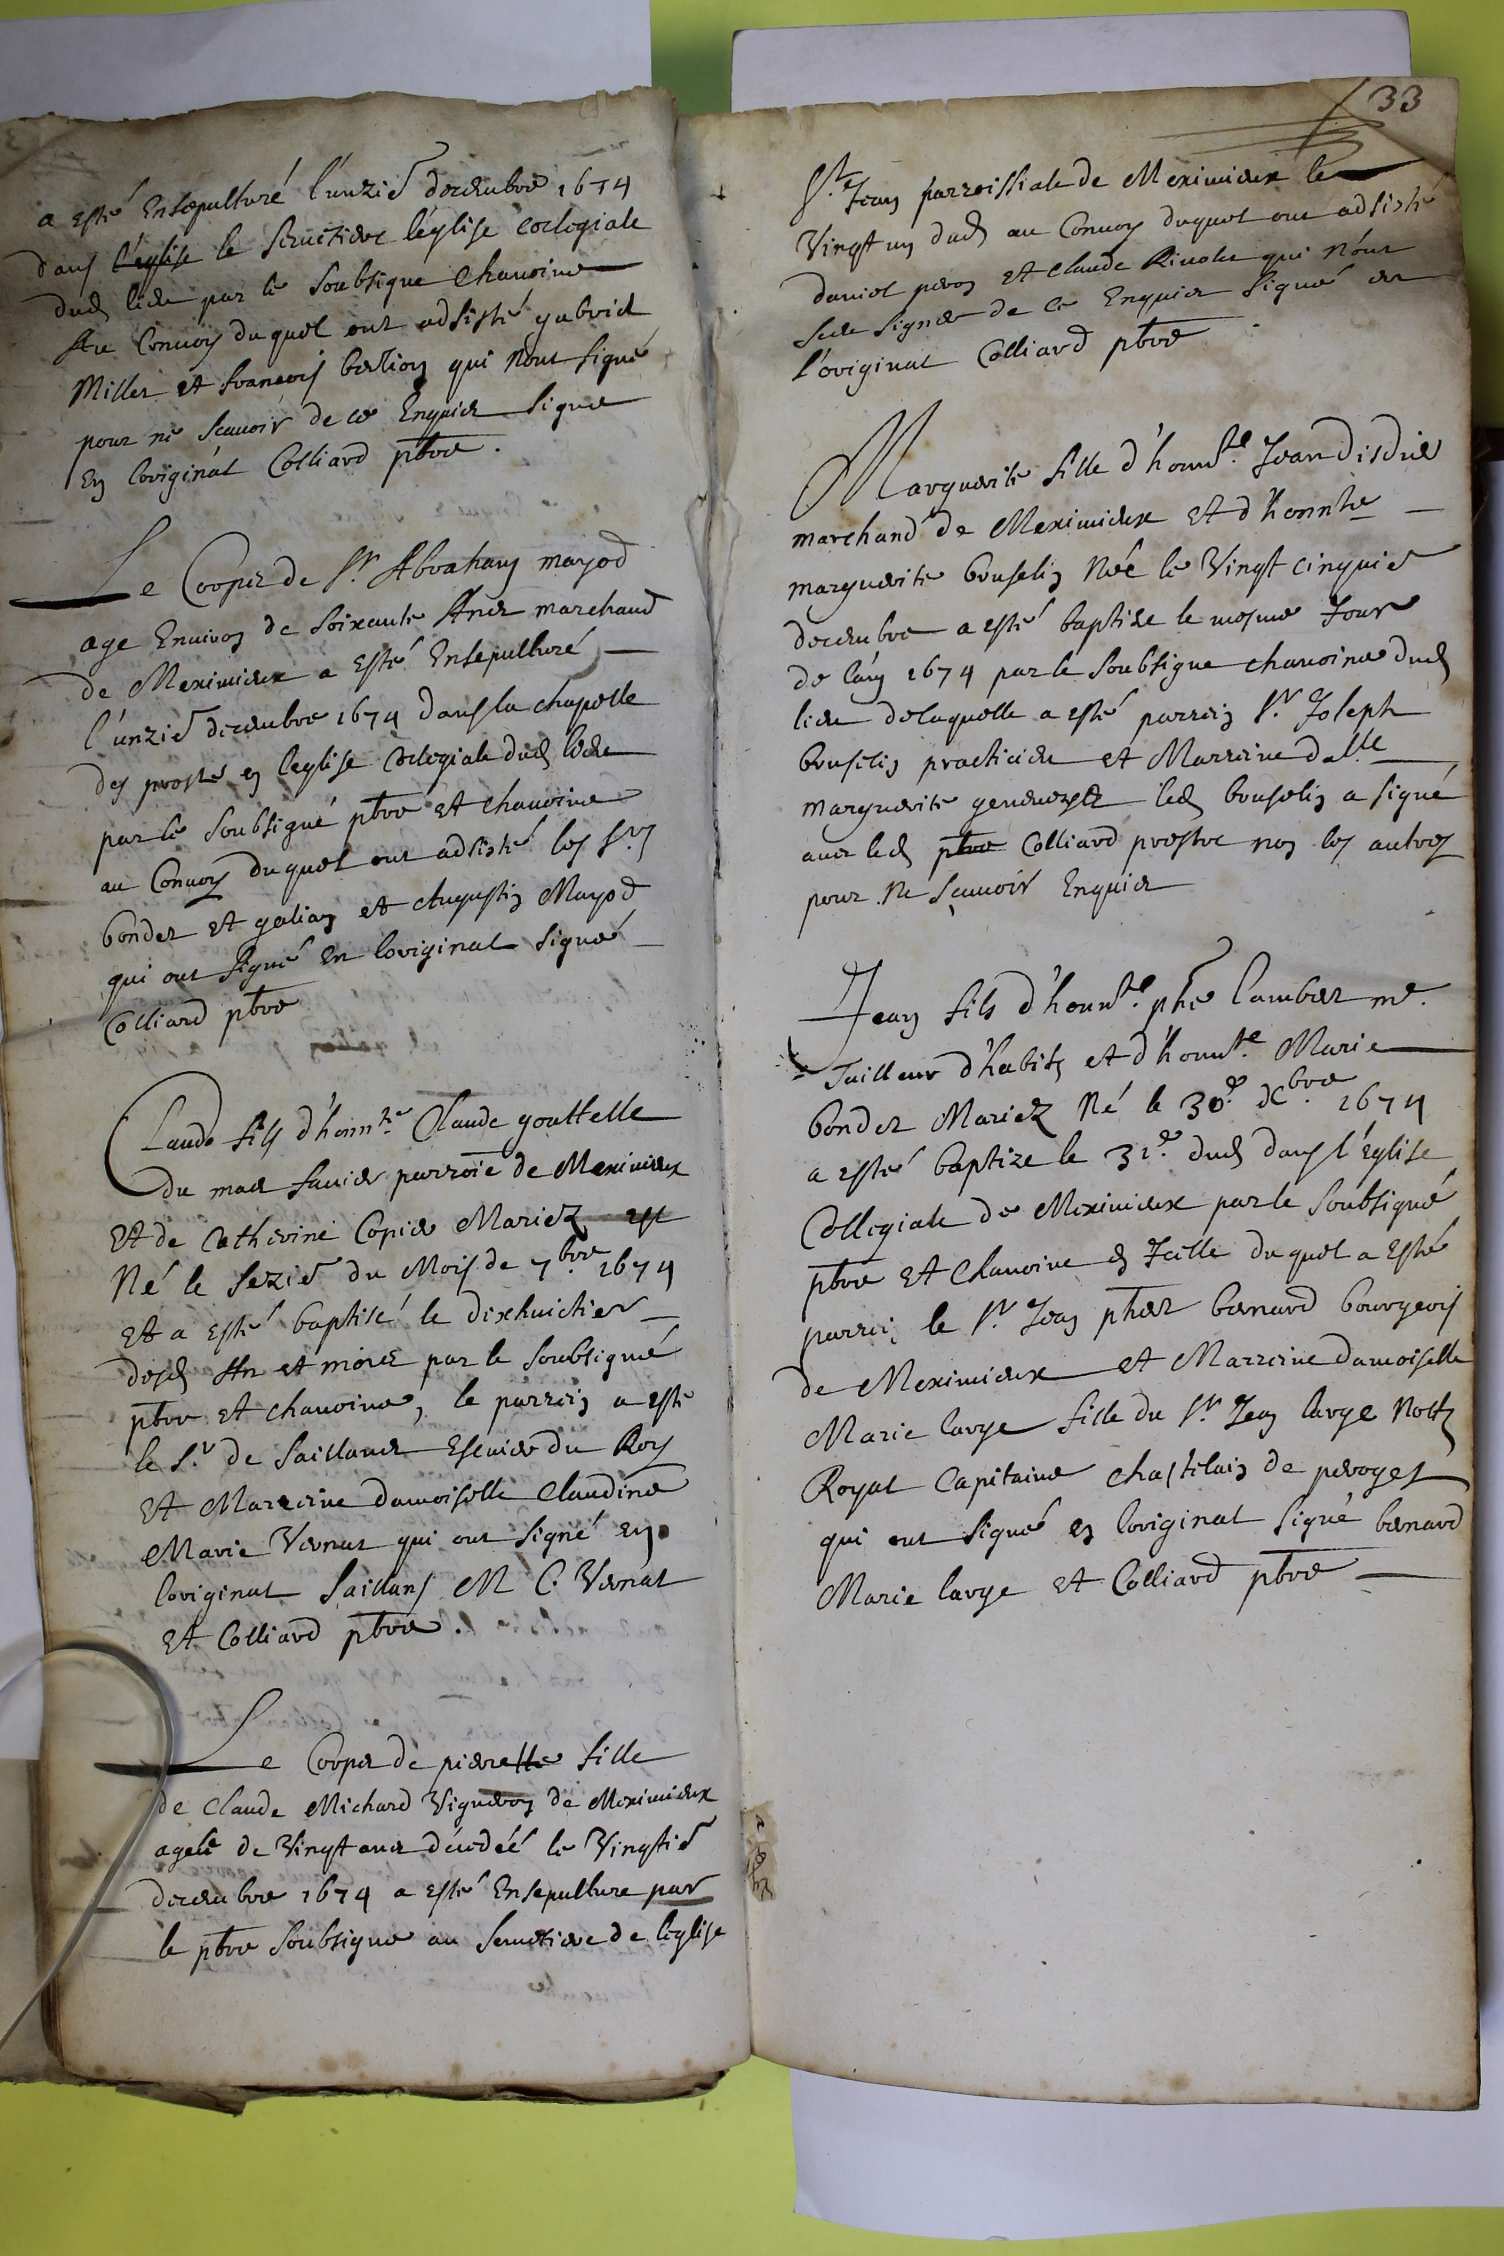 a esté Ensepulturé l'unzie decembre 1674
dans l'eglise le semetiere l'églyse collegiale
dud lieu par le soubsigne chanoine
Au Convoy duquel ont adsisté gabriel
Miller et francois berlion qui nont signé
pour ne scavoir de ce Enquier signe
En l'original Colliard pbre.
Le Corps de Sr Abraham mayod
age Environ de soixante Ans marchand
de Meximieux a Esté Ensepulturé
l'unzie decembre 1674 dans la chapelle
des en l'eglise Collegiale dud lieu
par le soubsigné pbre et chanoine
au Convoy duquel ont adsisté les Srs
bondet et galian et Augustin Mayod
qui ont signé en loriginal signé
Colliard pbre
Claude fils d'honnte Claude gouttelle
du mas parroie de Meximieux
et de Catherine Copier Mariez est
Né le sezie du Mois de 7bre 1674
et a esté baptisé le dixhuictier
desd An et mois par le soubsigné
pbre et chanoine, le parrein a esté
le Sr. de Saillans Escuier du Roy
et Marreine damoiselle Claudine
Marie Vernat qui ont signé En
loriginal Saillans M C. Vernat
et Colliard pbre.
Le Corps de pierrette fille
de Claude Michard Vigneron de Meximieux
ageé de Vingt ans décedéé le Vingtie
decembre 1674 a esté Ensepulture par
le pbre soubsigne au semetiere de l'eglise
33
St Jean parroissiale de Meximieux le
Vingt un dud au Convoy duquel ont adsisté
daniel peron et Claude Rivolet qui n'ont
sceu signer de ce Enquier signé en
l'original Colliard pbre
Marguerite fille d'honnte. Jean disdier
marchand de Meximieux et d'honnte
marguerite bouselin Néé le Vingt cinquie
decembre a esté baptizé le mesme Jour
de l'an 1674 par le soubsigne chanoine dud
lieu delaquelle a esté parrein Sr. Joseph
bouselin practicien et Marreine dalle
marguerite led bouselin a signé
avec led pbre Colliard prestre non les autres
pour ne scavoir Enquier
Jean fils d'honnte. phe lambert me.
Tailleur d'habits et d'honnte. Marie
bondet Mariez Né le 30e. dcbre. 1674
a esté baptize le 31e. dud dans l'église
Collegiale de Meximieux par le soubsigné
pbre et Chanoine en Icelle duquel a Esté
parrein le Sr. Jean phert bernard bourgeois
de Meximieux et Marreine damoiselle
Marie large fille du Sr Jean large Notre
Royal Capitaine chastelain de peroges
qui ont signé en loriginal signé bernard
Marie large et Colliard pbre